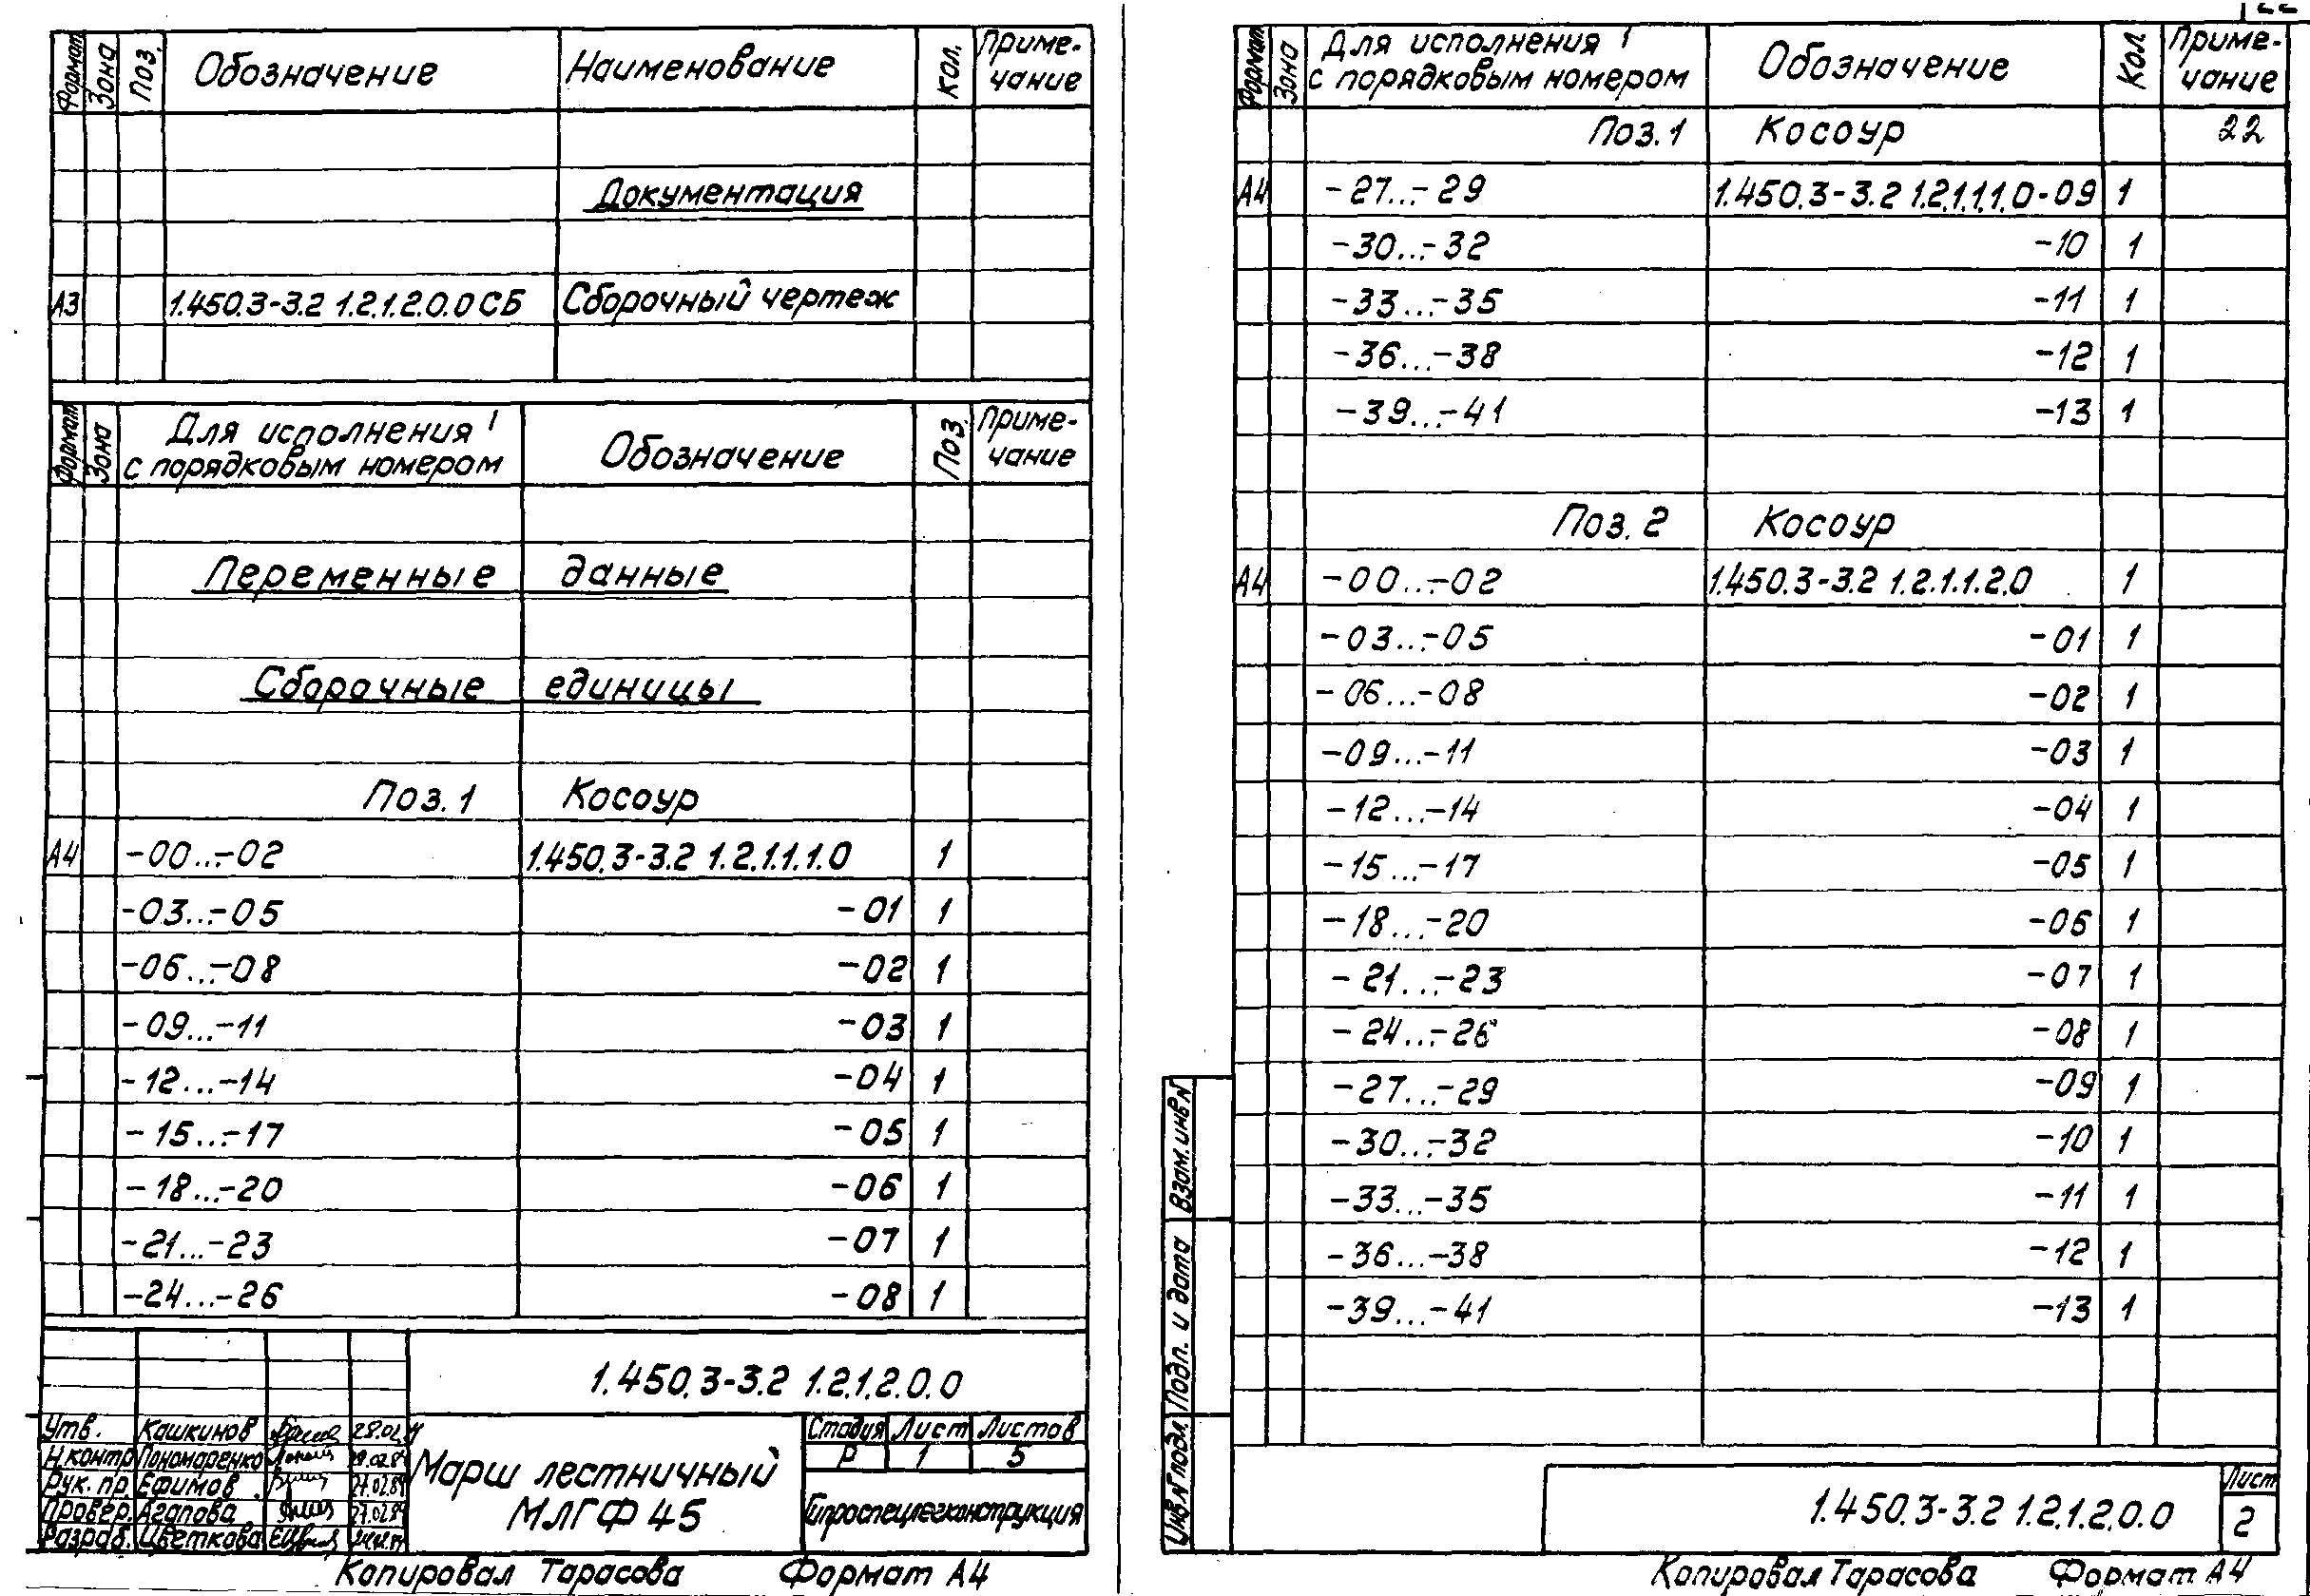 Формат Зона Поз. Обозначение Наименование Кол. Приме-
чание
Документация
А3 1.450.3-3.2 1.2.1.2.0.0 СБ Сборочный чертеж
Формат Зона Для исполнения Обозначение Поз. Приме-
с порядковым номером чание
Переменные данные
Сборочные единицы
Поз. 1 Косоур
А4 -00...-02 1.450.3-3.2 1.2.1.1.1.0 1
-03...-05 -01 1
-06...-08 -02 1
-09...-11 -03 1
-12...-14 -04 1
-15...-17 -05 1
-18...-20 -06 1
-21...-23 -07 1
-24...-26 -08 1
1.450.3-3.2 1.2.1.2.0.0
Утв. Кашкинов 28.02
Н.контр Пономаренко 28.02.89
Рук. пр. Ефимов 27.02.89
Провер. Агапова 27.02.89
Разраб. Цветкова
Марш лестничный
МЛГФ 45
Стадия Лист Листов
Р 1 5
Гипроспецлегконструкция
Копировал Тарасова Формат А4
Формат Зона Для исполнения Обозначение Кол. Приме-
с порядковым номером чание
Поз. 1 Косоур 22
А4 -27...-29 1.450.3-3.2 1.2.1.1.1.0-09 1
-30...-32 -10 1
-33...-35 -11 1
-36...-38 -12 1
-39...-41 -13 1
Поз. 2 Косоур
А4 -00...-02 1.450.3-3.2 1.2.1.1.2.0 1
-03...-05 -01 1
-06...-08 -02 1
-09...-11 -03 1
-12...-14 -04 1
-15...-17 -05 1
-18...-20 -06 1
-21...-23 -07 1
-24...-26 -08 1
-27...-29 -09 1
-30...-32 -10 1
-33...-35 -11 1
-36...-38 -12 1
-39...-41 -13 1
Взам.инв№
Подп. и дата
Инв.№подл.
1.450.3-3.2 1.2.1.2.0.0
Лист
2
Копировал Тарасова Формат А4